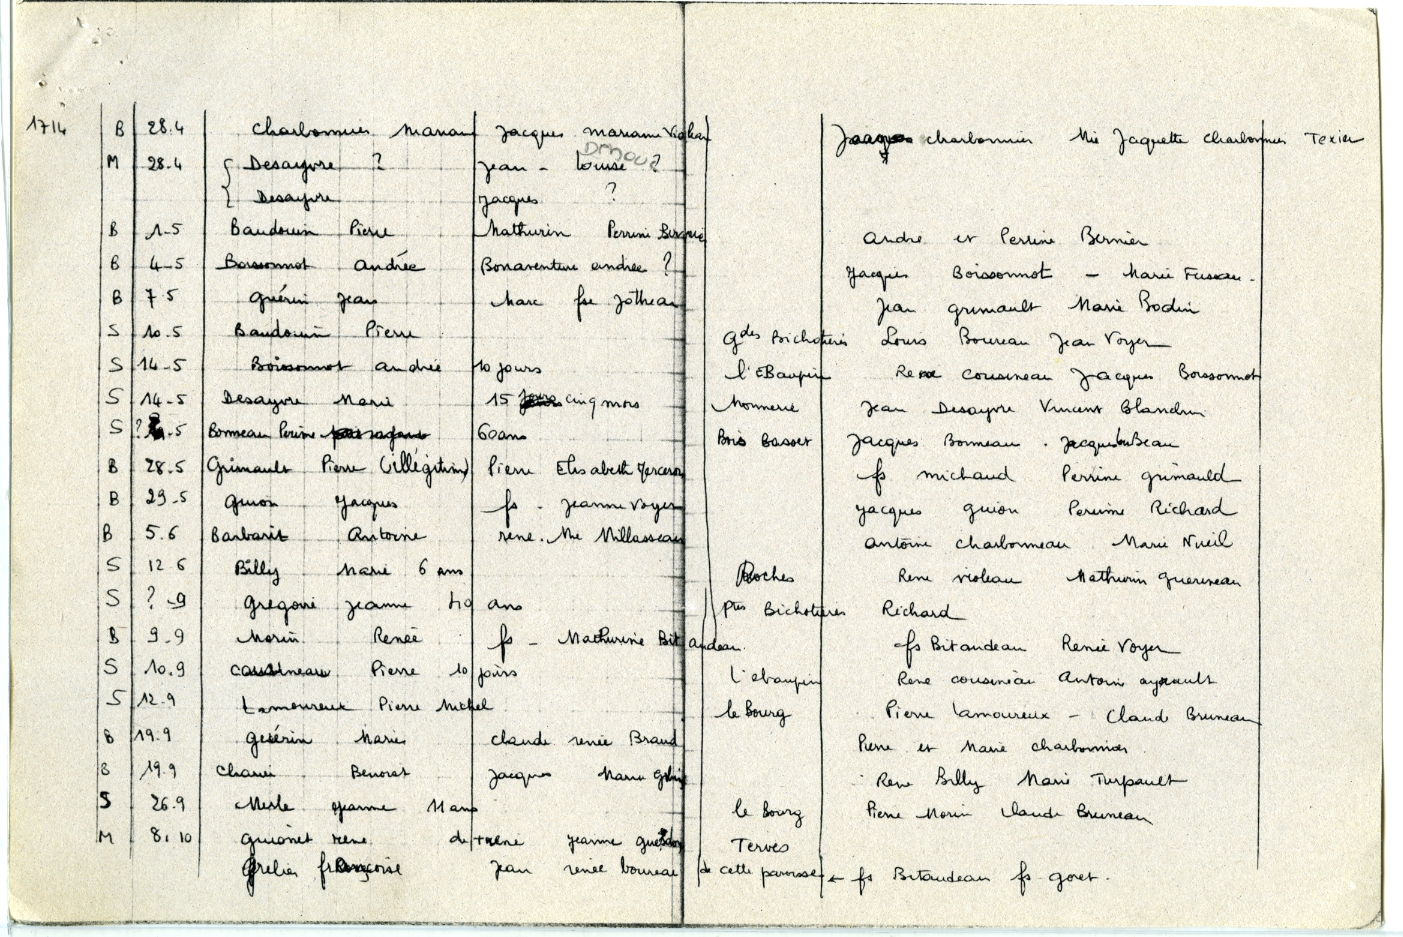 1714 B 28.4 Charbonnier Jacques mariane Jacques charbonnier Mie Jaquette charbonnier Texier
M 28.4 Desayvre ? Jean - Louise ?
Desayvre Jacques ?
B 1-5 Baudouin Pierre Mathurin Perrine andré et Perrine Bernier
B 4-5 Boissonnot andrée Bonaventure andrée ? Jacques Boissonnot - Marie Fuseau -
B 7.5 guérin Jean Marc fse Jottreau Jean grimault Marie Bodin
S 10.5 Baudouin Pierre Gdes Bichotières Louis Boureau Jean Voyer
S 14-5 Boissonnot andrée 10 jours l'EBaupin René cousineau Jacques Boissonnot
S 14.5 Desayvre Marie 15 cinq mois Monnerie Jean Desayvre Vincent Blandin
S ? .5 Bonneau Perine 60 ans Bois Basset Jacques Bonneau . Jacques
B 28.5 Grimault Pierre (illégitime) Pierre Elisabeth Merceron fs michaud Perrine grimauld
B 29-5 guion Jacques fs - Jeanne Voyer Jacques guion Perrine Richard
B 5.6 Barbarit Antoine rene. Mie Millasseau antoine charbonneau Marie Nueil
S 12 6 Billy Marie 6 ans Roches René violeau Mathurin guerineau
S ? -9 Gregoire Jeanne 40 ans ptes Bichotières Richard
B 9-9 Morin Renée fs - Mathurine Bitaudeau. fs Bitaudeau Renée Voyer
S 10.9 cousineau Pierre 10 jours L'ebaupin René cousineau Antoine ayrault
S 12.9 Lamoureux Pierre Michel le Bourg Pierre Lamoureux - Claud Bruneau
B 19.9 guérin Marie claude renée Braud Pierre et Marie charbonnier
B 19.9 Benoist Jacques Marie René Billy Marie Turpault
S 26.9 Merle Jeanne 11 ans le Bourg Pierre Morin Claude Bruneau
M 8.10 guionet rene de +rené jeanne Terves
Grelier françoise Jean renée boureau de cette paroisse ← fs Bitaudeau fs goret.